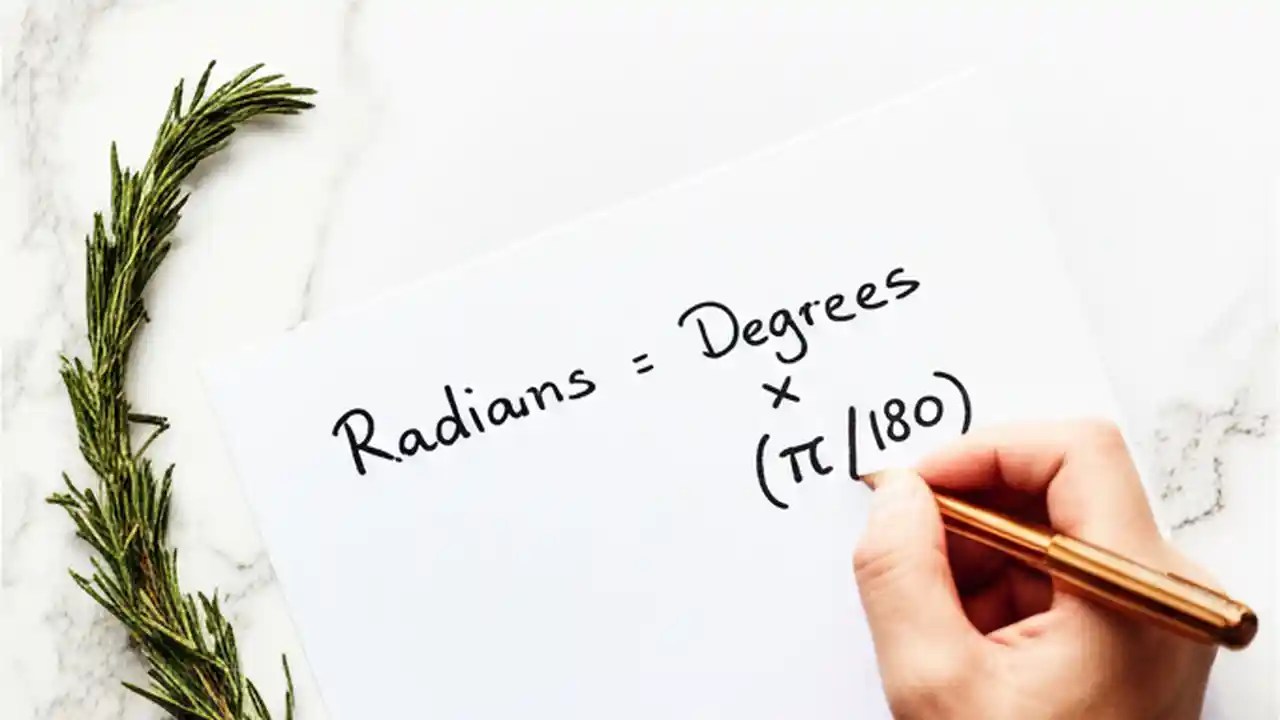 Radians = Degrees
×
(π/180)